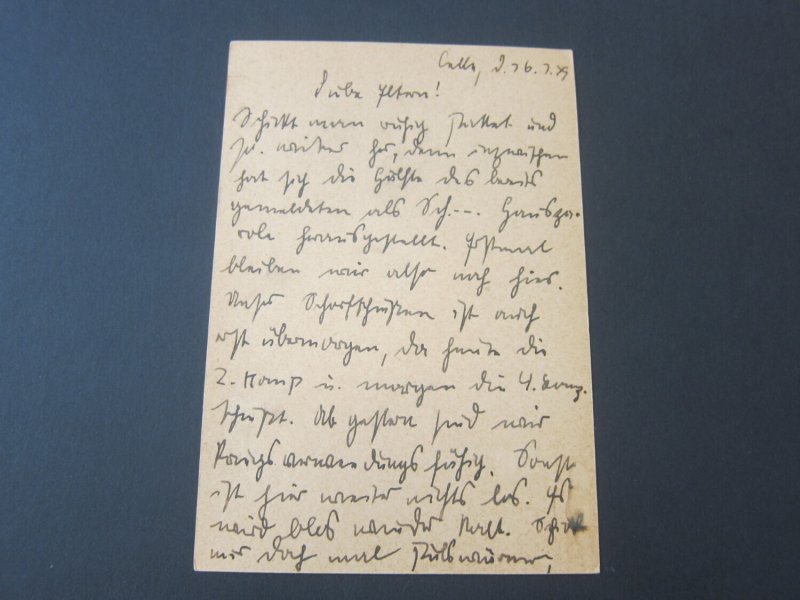 Celle, d. 26.7.
Liebe Eltern!
Schickt man ruhig Paket und
so weiter her, denn inzwischen
hat sich die Hälfte des bereits
gemeldeten als Sch... Hauspa-
role herausgestellt. Erstmal
bleiben wir also noch hier.
Unser Scharfschießen ist auch
erst übermorgen, da heute die
2. Komp u. morgen die 4. Komp.
schießt. Ab gestern sind wir
kriegsverwendungsfähig. Sonst
ist hier weiter nichts los. Es
wird blos wieder kalt. Schickt
mir doch mal Pulswärmer,